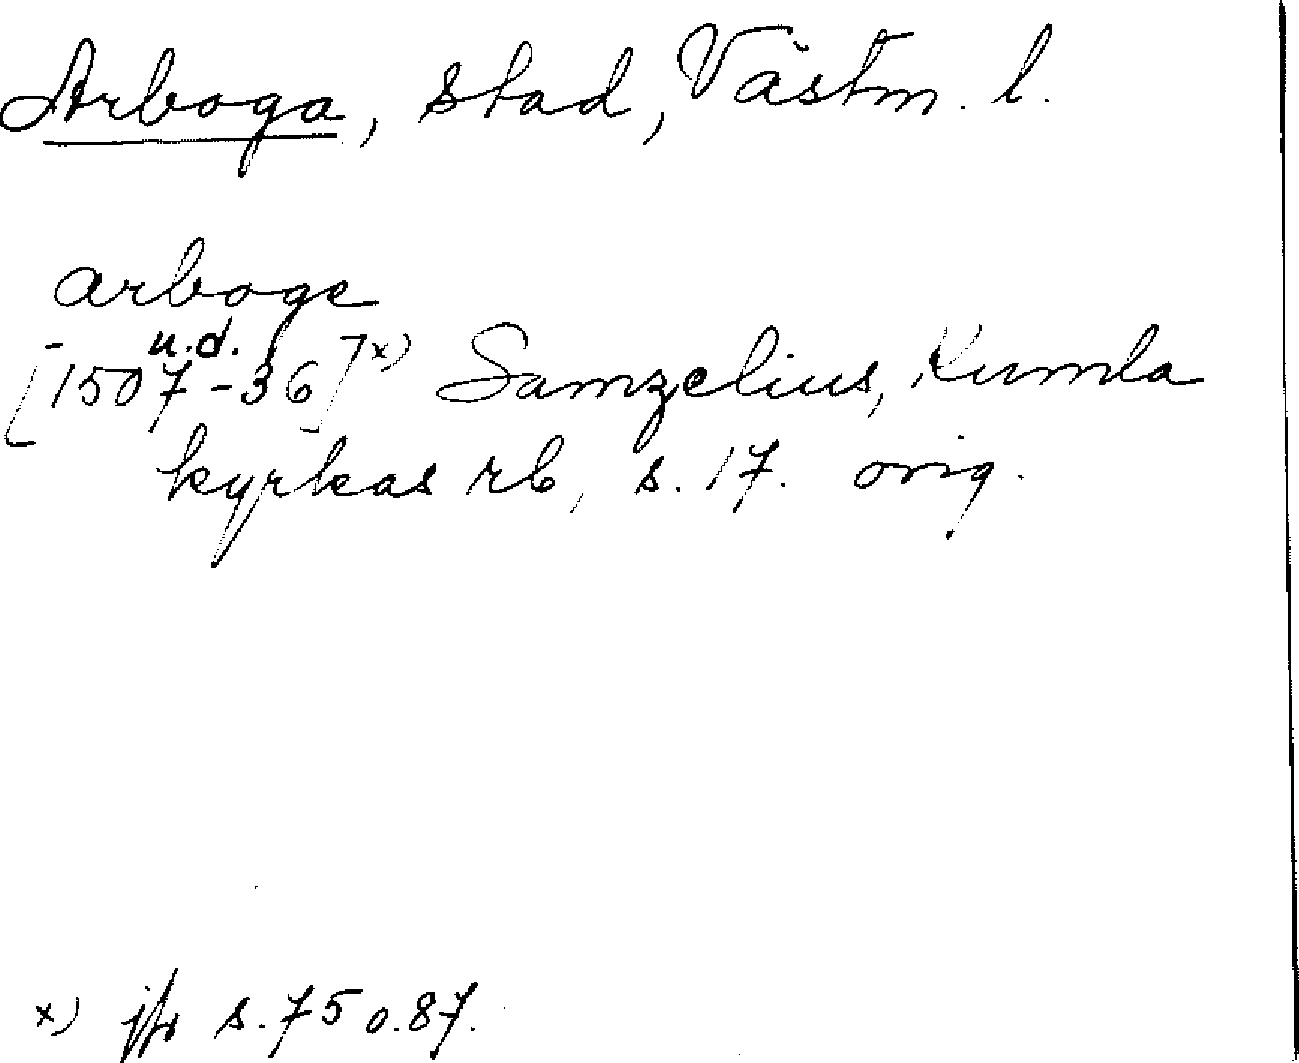 Arboga, stad, Västm. l.
arboge
u.d.
[1507-36]x) Samzelius, Kumla
kyrkas rb, s. 17. orig.
x) jfr s. 75 o. 87.